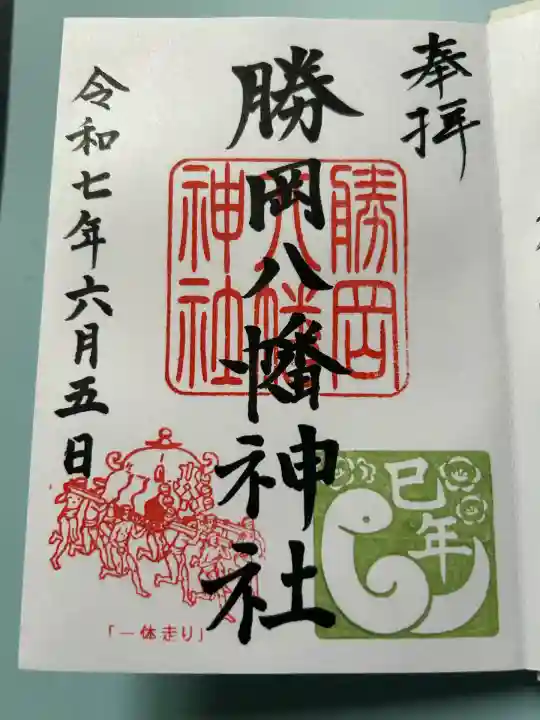 奉拝
勝岡八幡神社
勝岡
八幡
神社
令和七年六月五日
巳年
「一体走り」